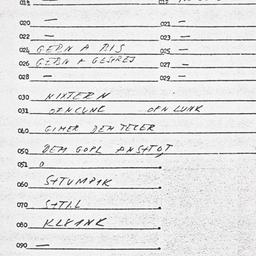 018 — 019
020 — 021 —
022 — 023 —
024 GEBN A BIS 025 —
026 GEBN A GESHEJ 027 —
028 — 029 —
030 NIXTERN
031 OFNCUNG OFN LUNK
040 GIMER DEM TELER
050 DEM GOPL ANSHTOT
051 0
060 SHTUMPIK
070 SHTIL
080 KLYANK
090 —